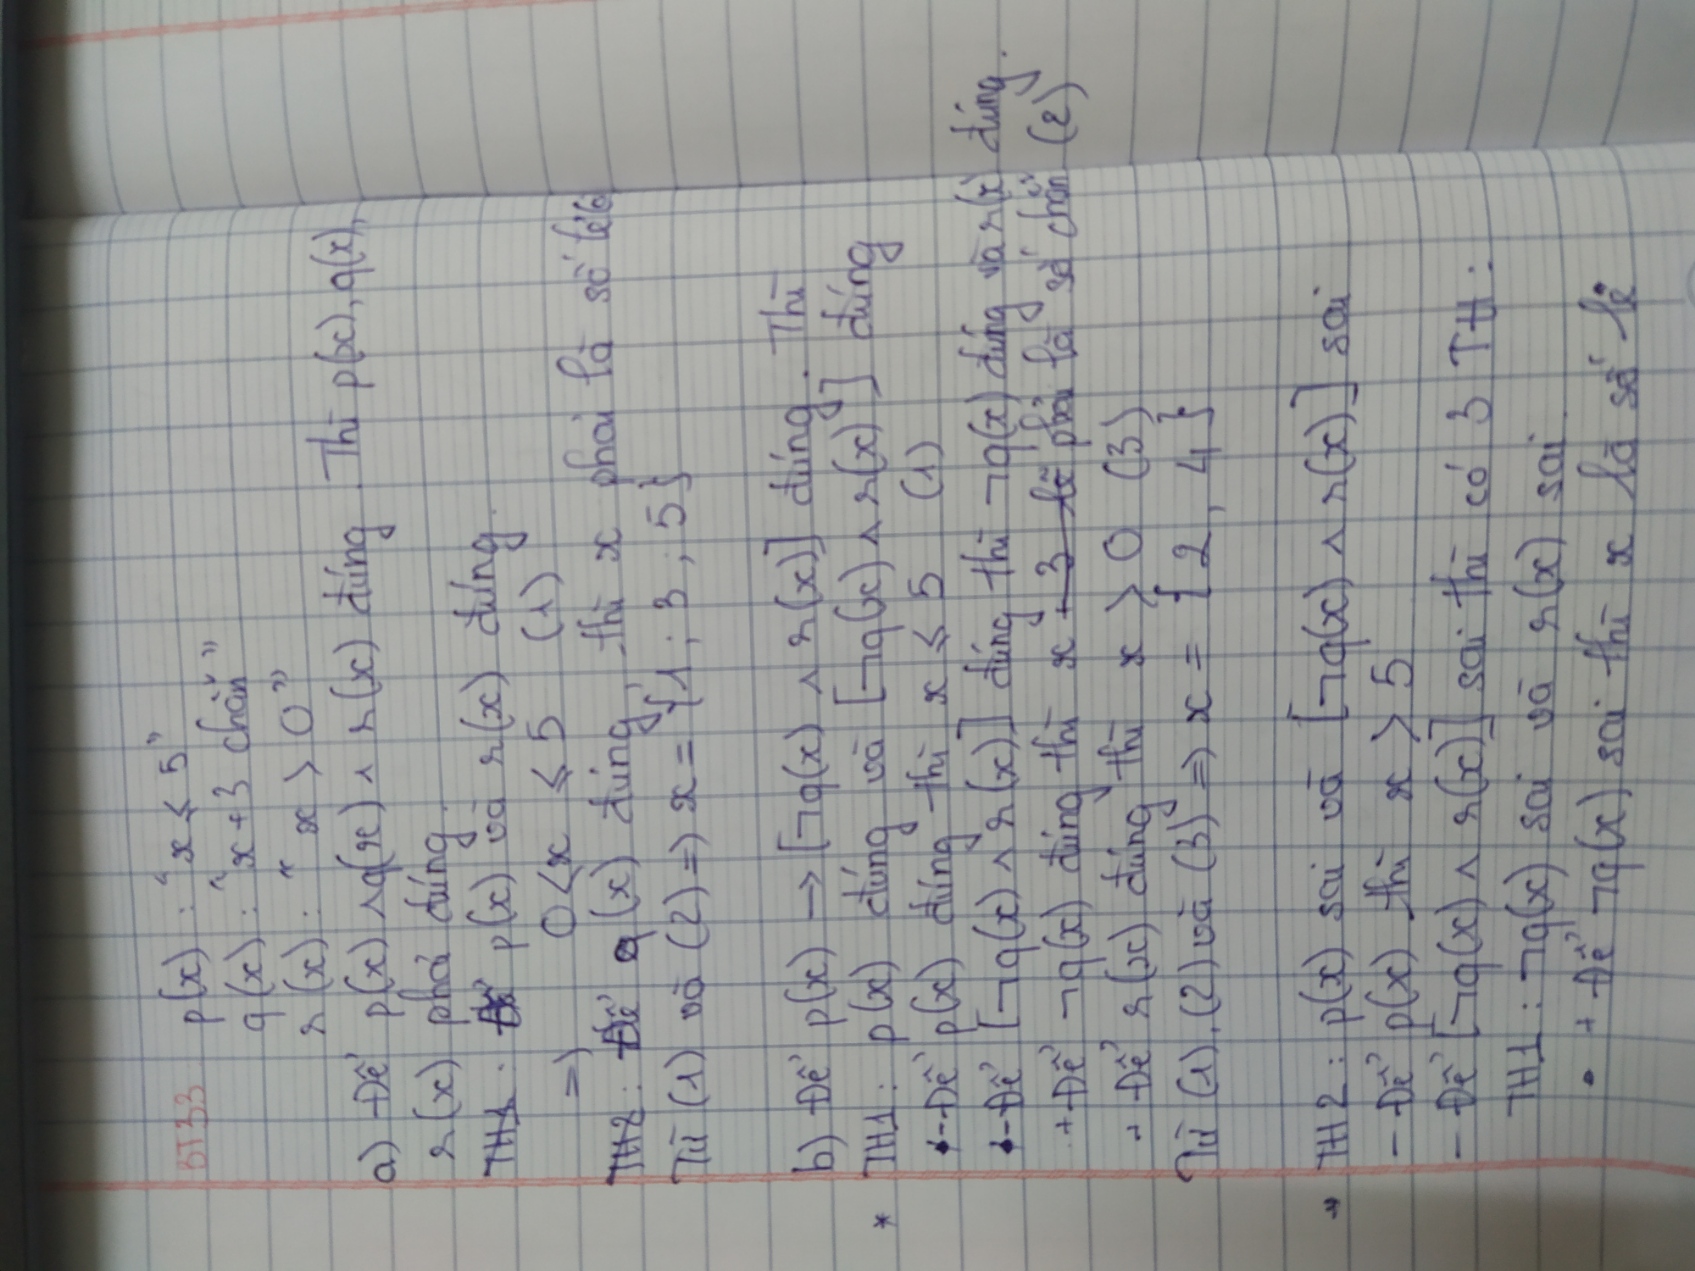 BT33 p(x) : "x ≤ 5"
q(x) : "x + 3 chẵn"
r(x) : "x > 0"
a) Để p(x) ∧ q(x) ∧ r(x) đúng. Thì p(x), q(x),
r(x) phải đúng.
TH1 : Để p(x) và r(x) đúng.
=> 0 < x ≤ 5 (1)
TH2 : Để q(x) đúng, thì x phải là số lẻ (2)
Từ (1) và (2) => x = {1 ; 3 ; 5}
b) Để p(x) → [¬q(x) ∧ r(x)] đúng. Thì
* TH1 : p(x) đúng và [¬q(x) ∧ r(x)] đúng
- Để p(x) đúng thì x ≤ 5 (1)
- Để [¬q(x) ∧ r(x)] đúng thì ¬q(x) đúng và r(x) đúng.
+ Để ¬q(x) đúng thì x + 3 lẽ phải là số chẵn (2)
+ Để r(x) đúng thì x > 0 (3)
Từ (1), (2) và (3) => x = {2, 4}
* TH2 : p(x) sai và [¬q(x) ∧ r(x)] sai
- Để p(x) thì x > 5
- Để [¬q(x) ∧ r(x)] sai thì có 3 TH :
TH1 : ¬q(x) sai và r(x) sai.
• + Để ¬q(x) sai thì x là số lẻ